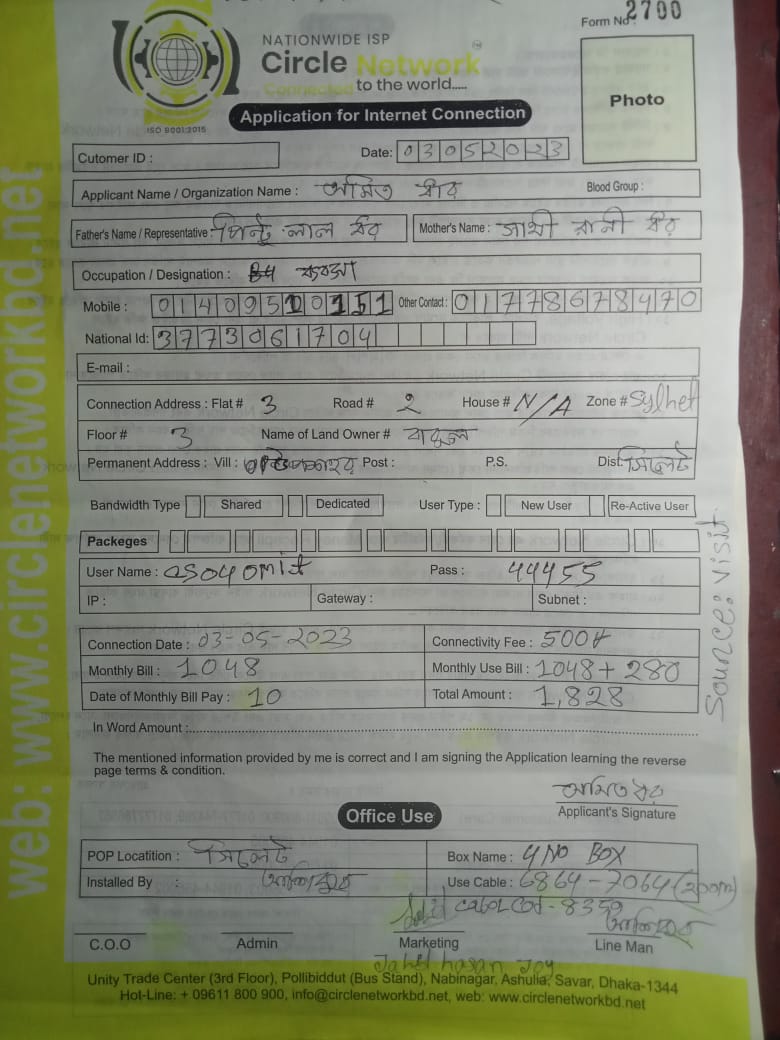 Form No: 2700
NATIONWIDE ISP
Circle Network
Connected to the world.....
ISO 9001:2015
Application for Internet Connection
Photo
Cutomer ID :
Date: 03052023
Applicant Name / Organization Name : অমিত ধর
Blood Group :
Father's Name / Representative : পিন্টু লাল ধর
Mother's Name : সাথী রানী ধর
Occupation / Designation : ব্যবসা
Mobile : 01409510151 Other Contact : 01778678470
National Id: 3773061704
E-mail :
Connection Address : Flat # 3 Road # 2 House # N/A Zone # Sylhet
Floor # 3 Name of Land Owner #
Permanent Address : Vill : Post : P.S. Dist: সিলেট
Bandwidth Type Shared Dedicated User Type : New User Re-Active User
Packeges
User Name : Pass : 44455
IP : Gateway : Subnet :
Connection Date : 03-05-2023 Connectivity Fee : 500
Monthly Bill : 1048 Monthly Use Bill : 1048 + 280
Date of Monthly Bill Pay : 10 Total Amount : 1,828
In Word Amount :
Source: Visit
The mentioned information provided by me is correct and I am signing the Application learning the reverse
page terms & condition.
অমিত ধর
Applicant's Signature
Office Use
POP Locatition : সিলেট Box Name : 4 NO BOX
Installed By : Use Cable : 6864 - 7064 (200m)
Cabol Cod - 8359
C.O.O Admin Marketing Line Man
Jahid hasan Joy
Unity Trade Center (3rd Floor), Pollibiddut (Bus Stand), Nabinagar, Ashulia, Savar, Dhaka-1344
Hot-Line: + 09611 800 900, info@circlenetworkbd.net, web: www.circlenetworkbd.net
web: www.circlenetworkbd.net